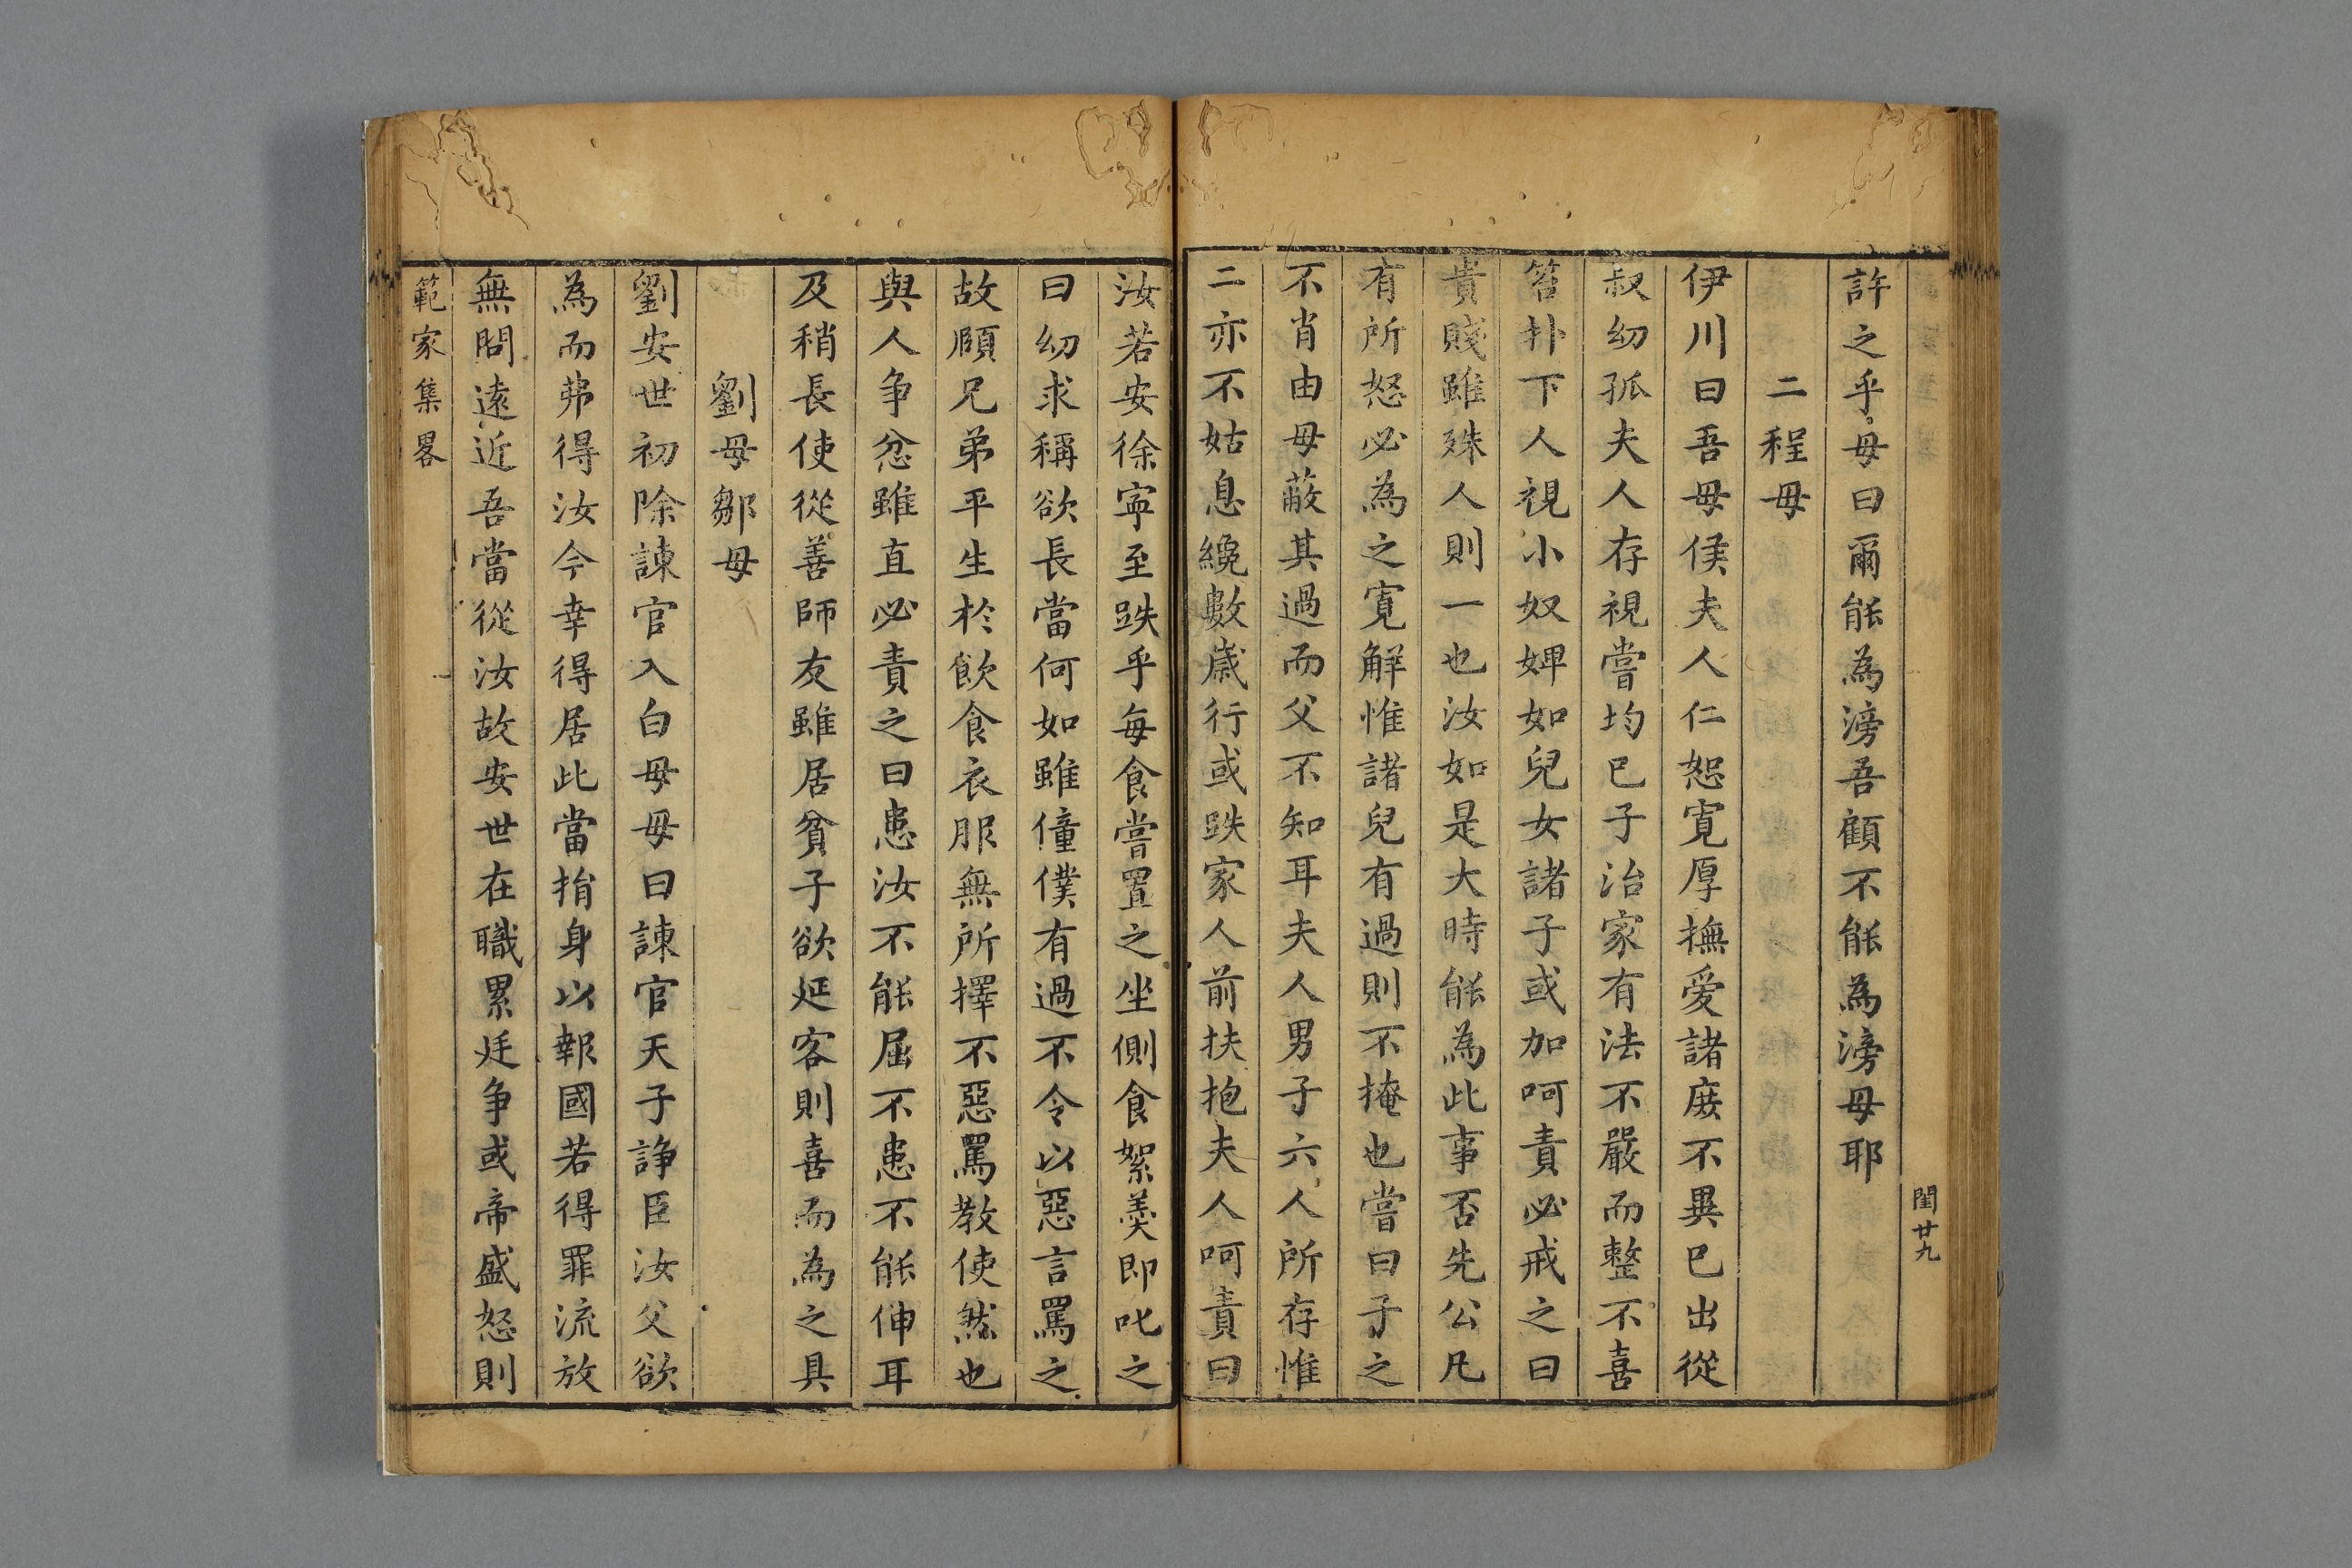 閨廿九
許之乎母曰爾能為滂吾顧不能為滂母耶
二程母
伊川曰吾母侯夫人仁恕寬厚撫愛諸庶不異巳出從
叔幼孤夫人存視嘗均巳子治家有法不嚴而整不喜
笞扑下人視小奴婢如兒女諸子或加呵責必戒之曰
貴賤雖殊人則一也汝如是大時能為此事否先公凡
有所怒必為之寬解惟諸兒有過則不掩也嘗曰子之
不肖由母蔽其過而父不知耳夫人男子六人所存惟
二亦不姑息纔數歲行或跌家人前扶抱夫人呵責曰
汝若安徐寧至跌乎每食嘗置之坐側食絮羹即叱之
曰幼求稱欲長當何如雖僮僕有過不令以惡言罵之
故頤兄弟平生於飲食衣服無所擇不惡罵教使然也
與人争忿雖直必責之曰患汝不能屈不患不能伸耳
及稍長使從善師友雖居貧子欲延客則喜而為之具
劉母鄒母
劉安世初除諫官入白母母曰諫官天子諍臣汝父欲
為而弗得汝今幸得居此當捐身以報國若得罪流放
無問遠近吾當從汝故安世在職累廷争或帝盛怒則
範家集畧